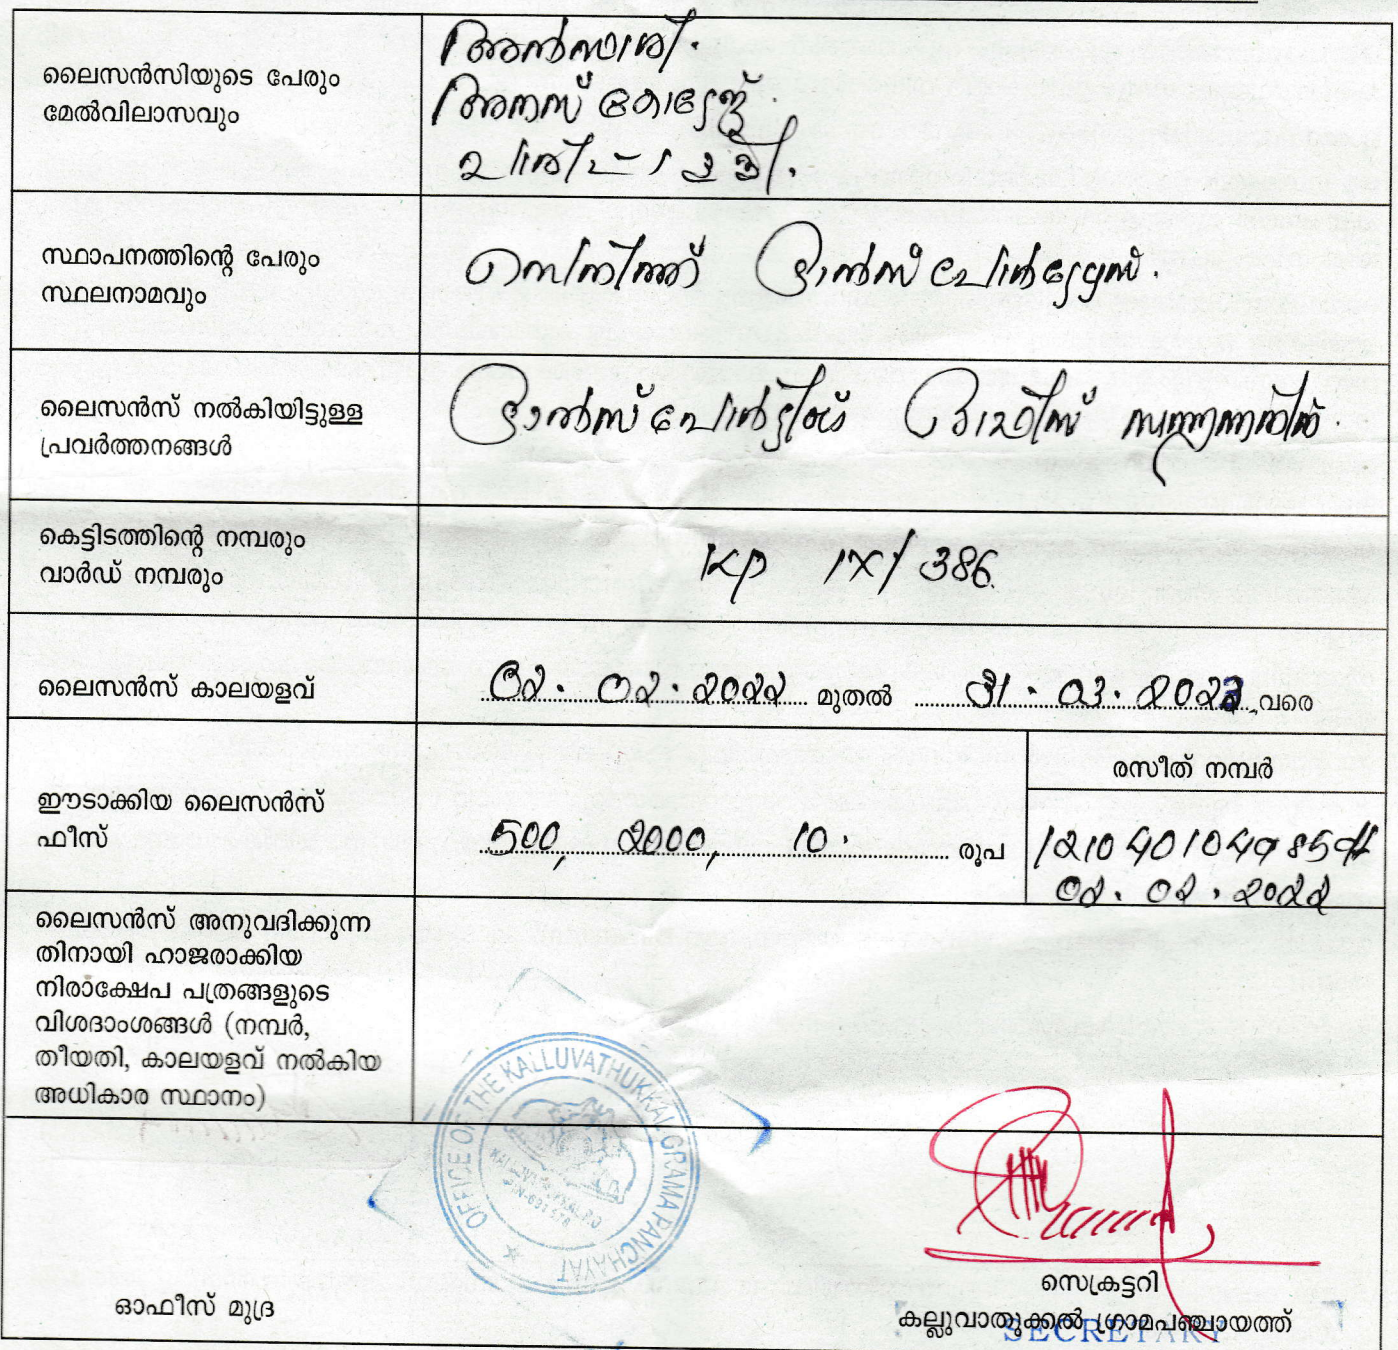 ലൈസൻസിയുടെ പേരും
മേൽവിലാസവും
അൻസാരി.
അനസ് കോട്ടേജ്.
ചിരിപ്പള്ളി.
സ്ഥാപനത്തിന്റെ പേരും
സ്ഥലനാമവും
ട്രാൻസ്പോർട്ടേഴ്സ്.
ലൈസൻസ് നൽകിയിട്ടുള്ള
പ്രവർത്തനങ്ങൾ
ട്രാൻസ്പോർട്ടിംഗ് ഓഫീസ്
കെട്ടിടത്തിന്റെ നമ്പരും
വാർഡ് നമ്പരും
KP IX/386
ലൈസൻസ് കാലയളവ്
02.02.2022 മുതൽ 31.03.2023 വരെ
ഈടാക്കിയ ലൈസൻസ്
ഫീസ്
500, 2000, 10. രൂപ
രസീത് നമ്പർ
02.02.2022
ലൈസൻസ് അനുവദിക്കുന്ന
തിനായി ഹാജരാക്കിയ
നിരാക്ഷേപ പത്രങ്ങളുടെ
വിശദാംശങ്ങൾ (നമ്പർ,
തീയതി, കാലയളവ് നൽകിയ
അധികാര സ്ഥാനം)
OFFICE OF THE KALLUVATHUKKAL GRAMA PANCHAYAT
ഓഫീസ് മുദ്ര
സെക്രട്ടറി
കല്ലുവാതുക്കൽ ഗ്രാമപഞ്ചായത്ത്
SECRETARY